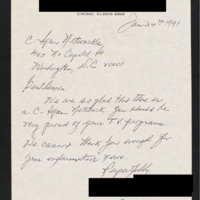 CHICAGO, ILLINOIS 60656
Jan 24th 1991
C-Span Network
400 No Capitol St
Washington, D.C 20001
Gentlemen
We are so glad that there is
a C-Span Network. You should be
very proud of your T.V. programs
We cannot thank you enough for
your informative news.
Respectfully